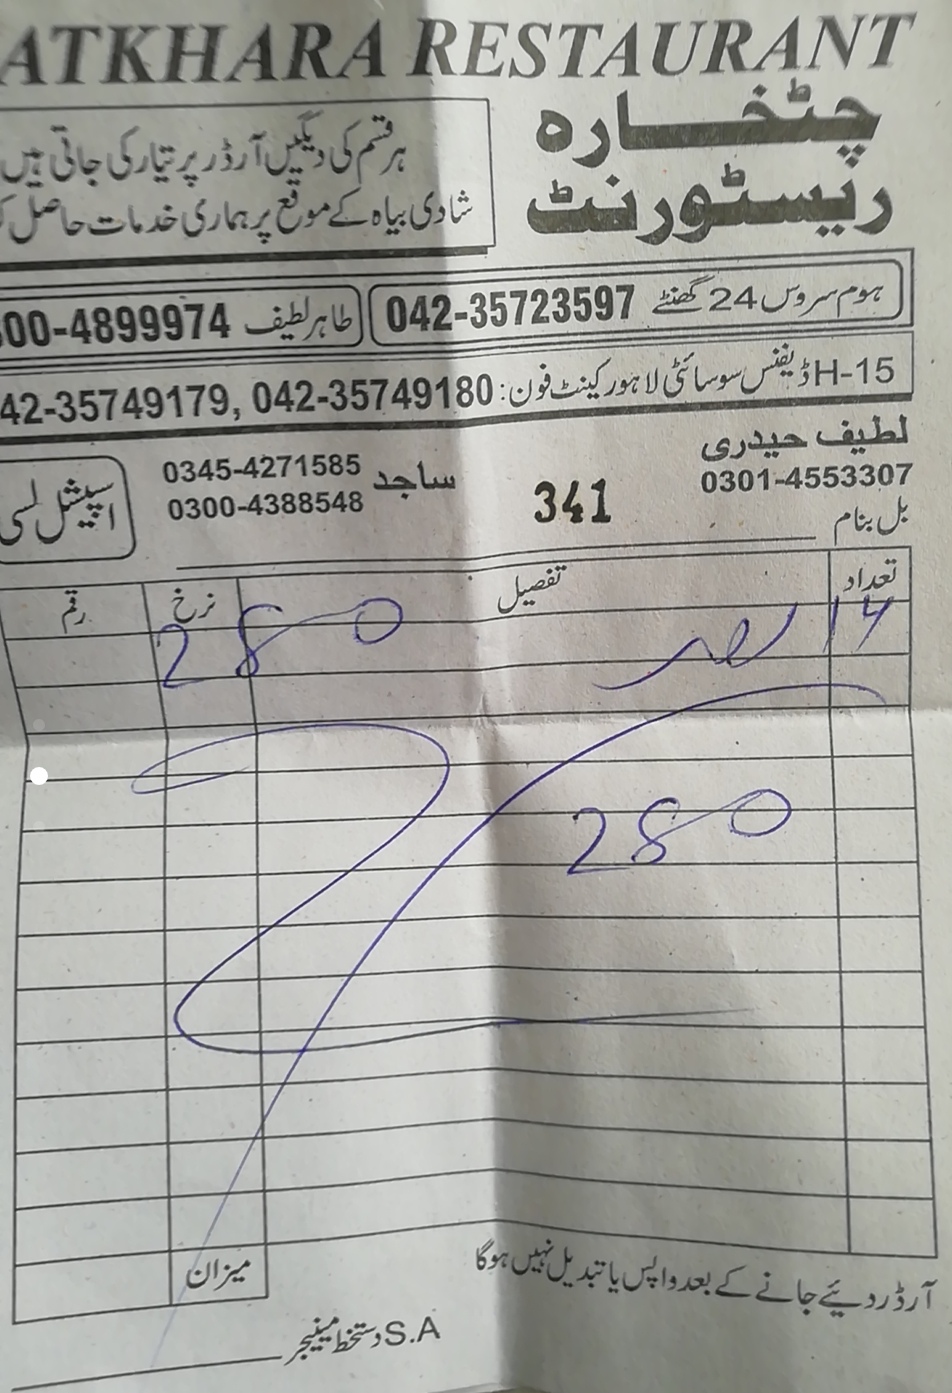 ATKHARA RESTAURANT
چٹخارہ
ریسٹورنٹ
ہر قسم کی دیگیں آرڈر پر تیار کی جاتی ہیں
شادی بیاہ کے موقع پر ہماری خدمات حاصل
ہوم سروس 24 گھنٹے 042-35723597
طاہر لطیف 00-4899974
H-15 ڈیفنس سوسائٹی لاہور کینٹ فون: 042-35749180 ,42-35749179
لطیف حیدری
0301-4553307
341
ساجد 0345-4271585
0300-4388548
اسپیشل لسی
بل بنام
تعداد تفصیل نرخ رقم
280
280
میزان
آرڈر دیئے جانے کے بعد واپس یا تبدیل نہیں ہوگا
S.A دستخط مینیجر